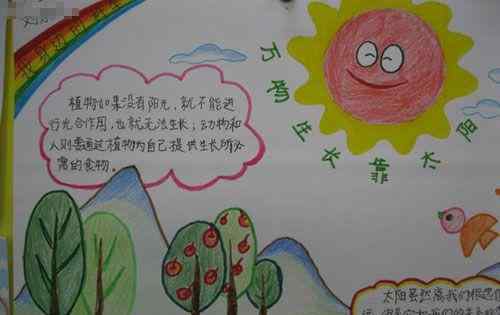 万物生长靠太阳
植物如果没有阳光，就不能进
行光合作用，也就无法生长；动物和
人则需通过植物为自己提供生长所必
需的食物。
太阳虽然离我们很遥